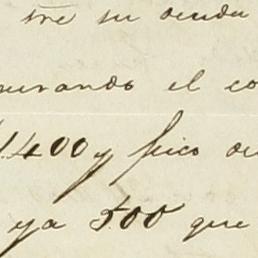 tre su deuda
urando el co
1.400 y pico de
ya 500 que